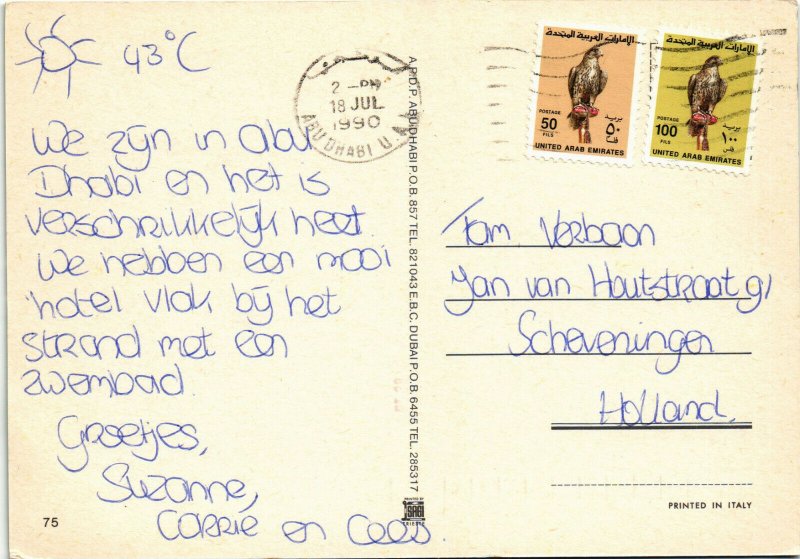 43°C
We zijn in Abu
Dhabi en het is
verschrikkelijk heet.
We hebben een mooi
hotel vlak bij het
strand met een
zwembad.
Groetjes,
Suzanne,
Corrie en Cees.
75
2 - PM
18 JUL
1990
ABU DHABI U
A.P.D.P. ABU DHABI P.O.B. 857 TEL. 821043 E.B.C. DUBAI P.O.B. 6455 TEL. 285317
PRINTED BY
TRIESTE
الإمارات العربية المتحدة
POSTAGE بريد
50 ٥٠
FILS فلس
UNITED ARAB EMIRATES
الإمارات العربية المتحدة
POSTAGE بريد
100 ١٠٠
FILS فلس
UNITED ARAB EMIRATES
Tom Verbaan
Jan van Houtstraat 91
Scheveningen
Holland.
PRINTED IN ITALY